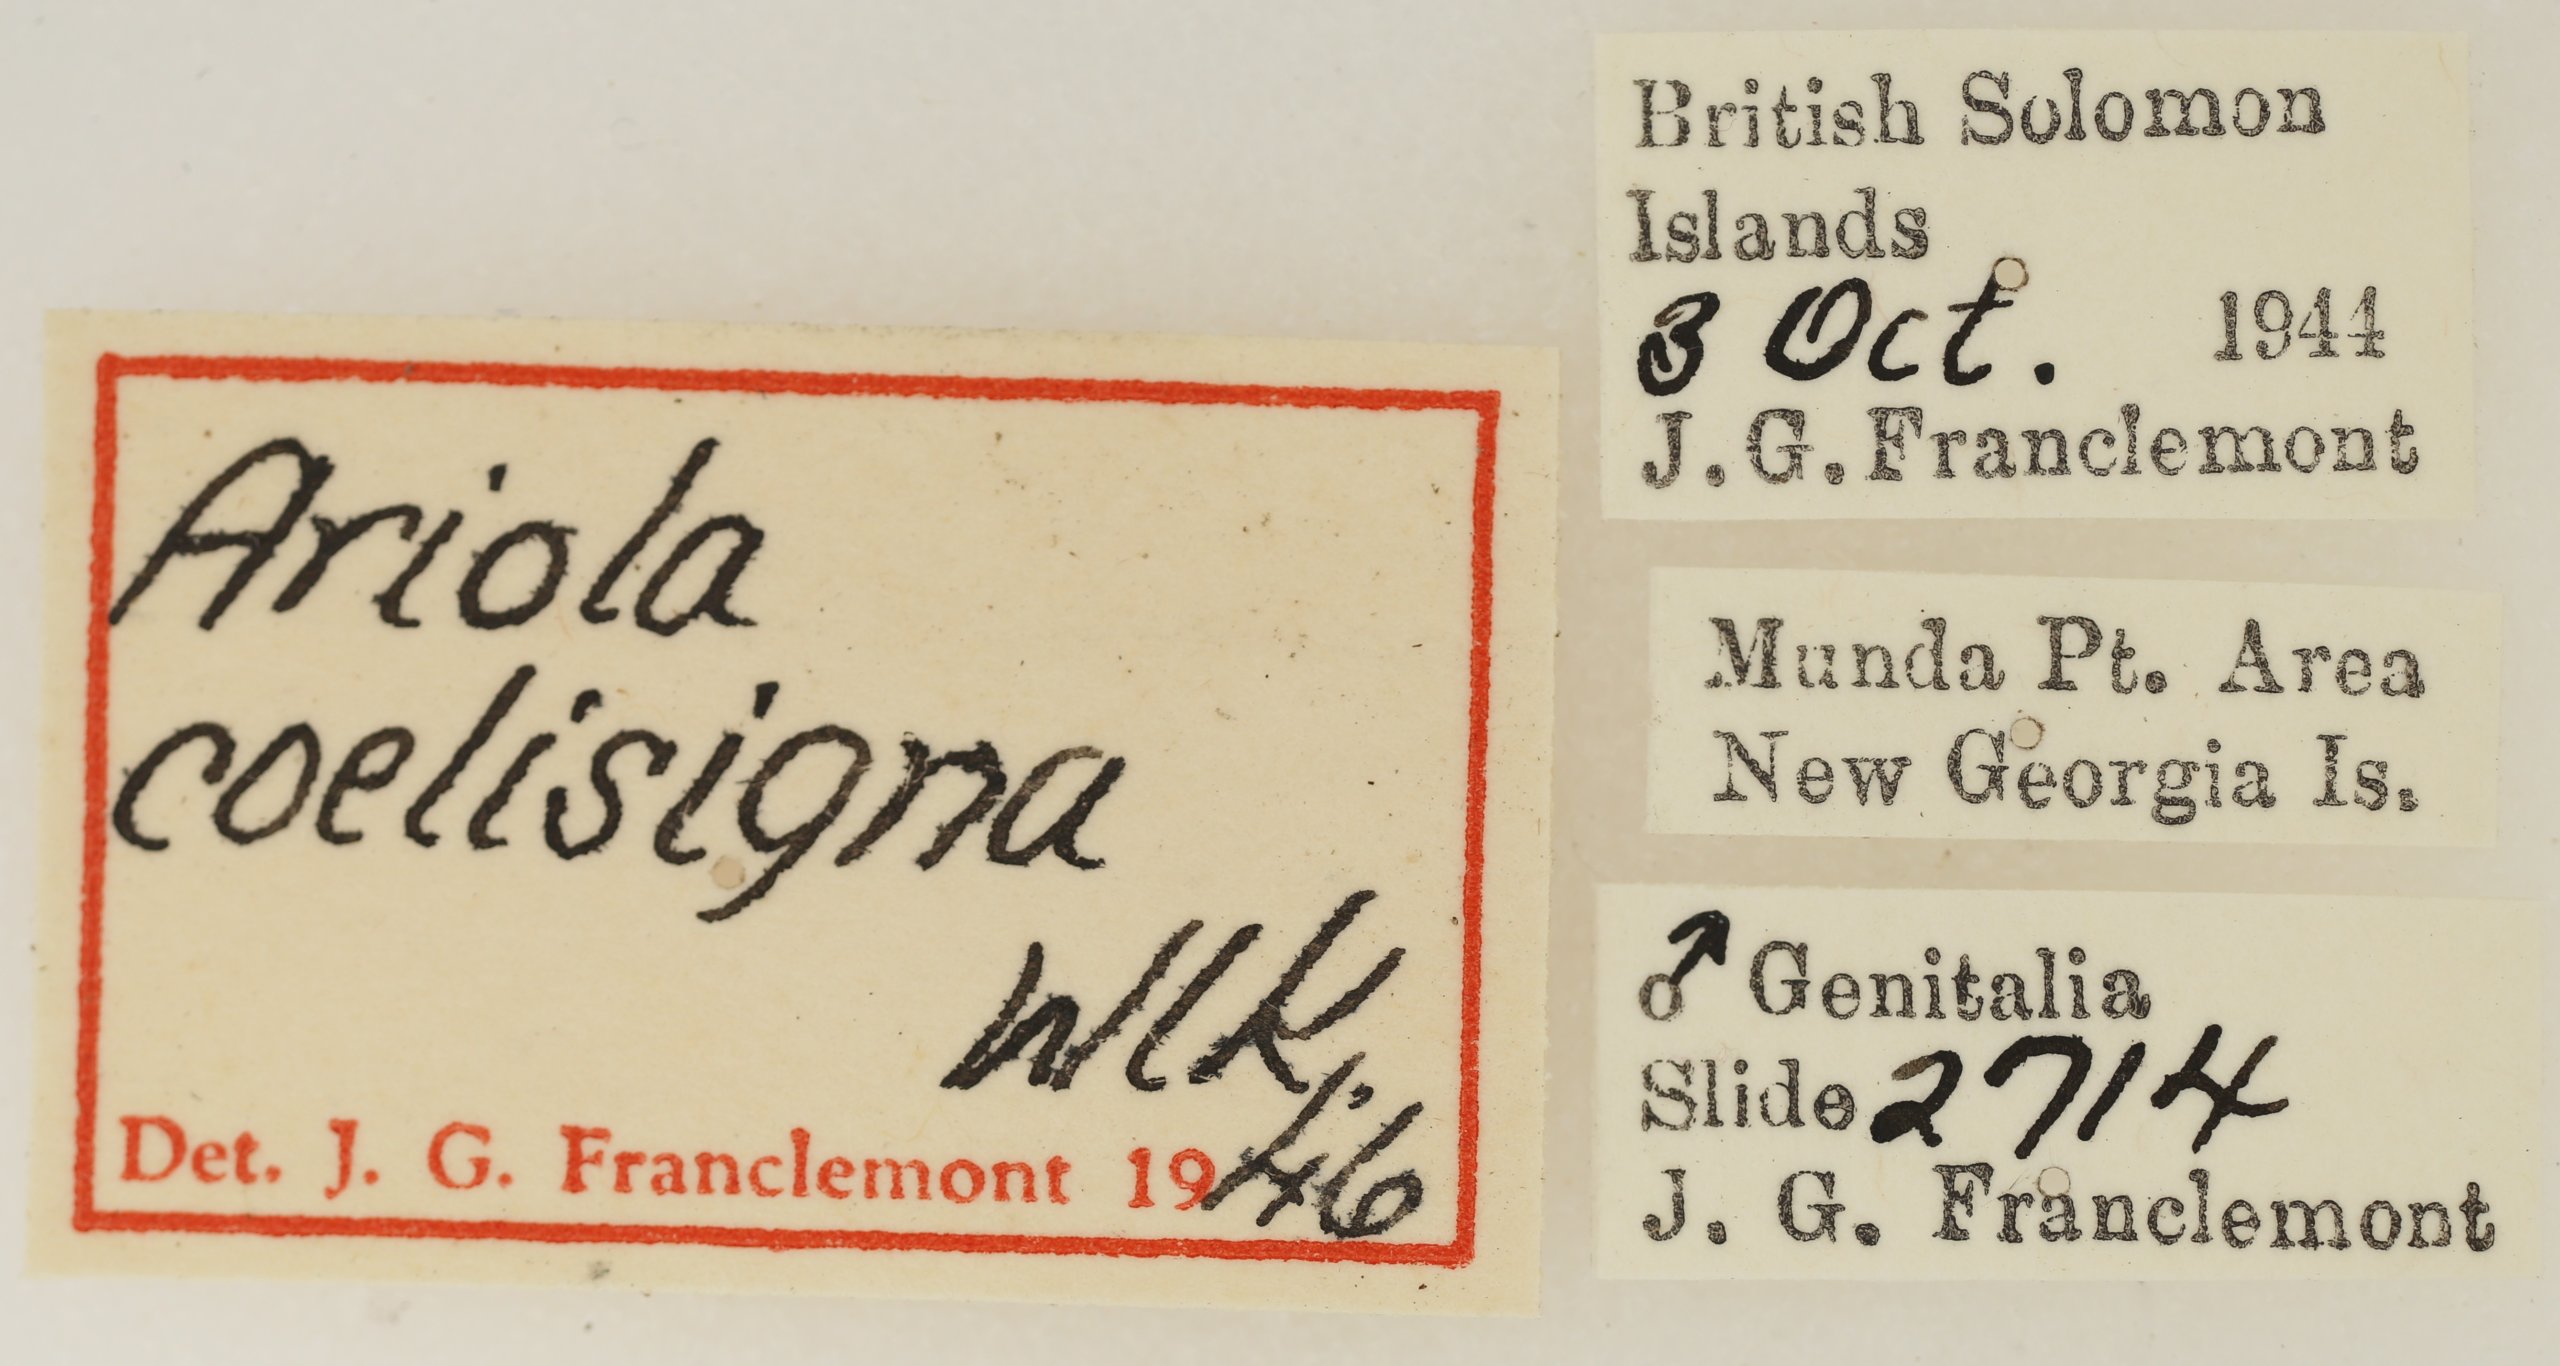 Ariola
coelisigna
Wlk.
Det. J. G. Franclemont 1946
British Solomon
Islands
3 Oct. 1944
J. G. Franclemont
Munda Pt. Area
New Georgia Is.
♂ Genitalia
Slide 2714
J. G. Franclemont